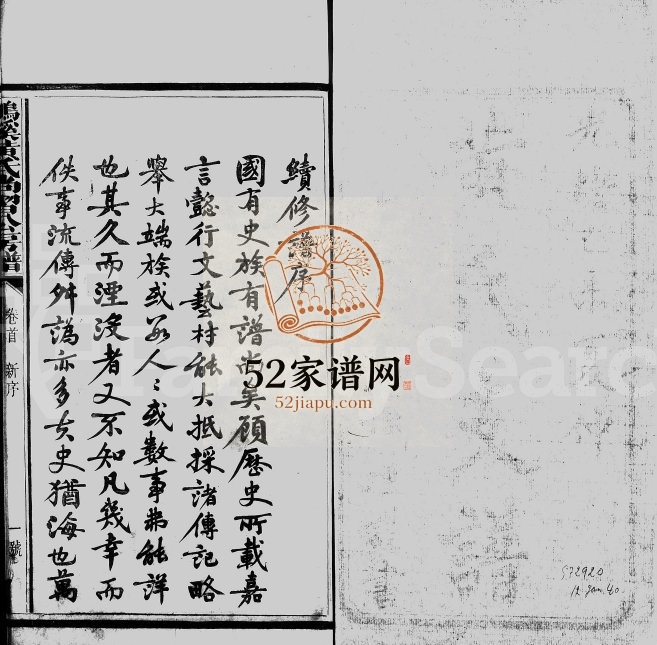 續修譜序
國有史族有譜尚矣顧歷史所載嘉
言懿行文藝材能大抵採諸傳記略
舉大端族或數人人或數事弗能詳
也其久而湮沒者又不知凡幾幸而
佚事流傳舛譌亦多夫史猶海也萬
黃氏
房譜
卷首 新序
一號
52家谱网
52jiapu.com
Family Search
572920
12 Jan. 60